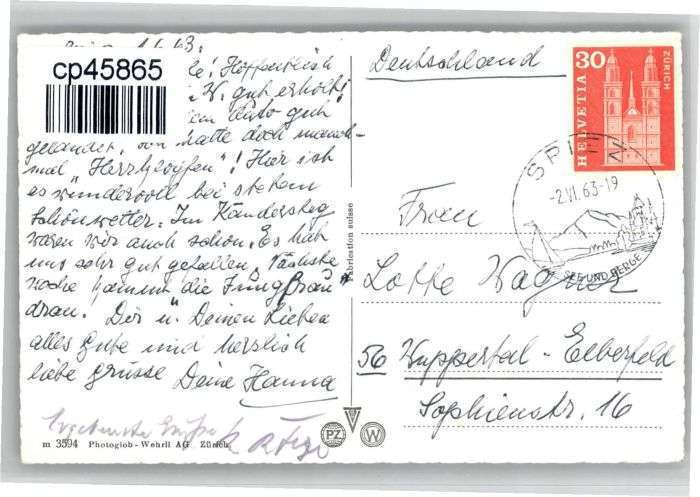 1.6.63.
cp45865
! Hoffentlich
gut erholt!
Auto gut
gelandet, hatte doch manch-
mal "Herzklopfen"! Hier ist
es wundervoll bei stetem
Schönwetter. Im Kandersteg
waren wir auch schon. Es hat
uns sehr gut gefallen. Nächste
Woche kommt die Jungfrau
dran. Dir u. Deinen Lieben
alles Gute und herzlich
liebe Grüsse Deine Hanna
m 3594 Photoglob - Wehrli AG. Zürich
Fabrication suisse
PZ W
Deutschland
30
HELVETIA
ZÜRICH
SPIEZ
-2.VI.63-19
SEE UND BERGE
Frau
Lotte Wagner
56 Wuppertal-Elberfeld
Sophienstr. 16